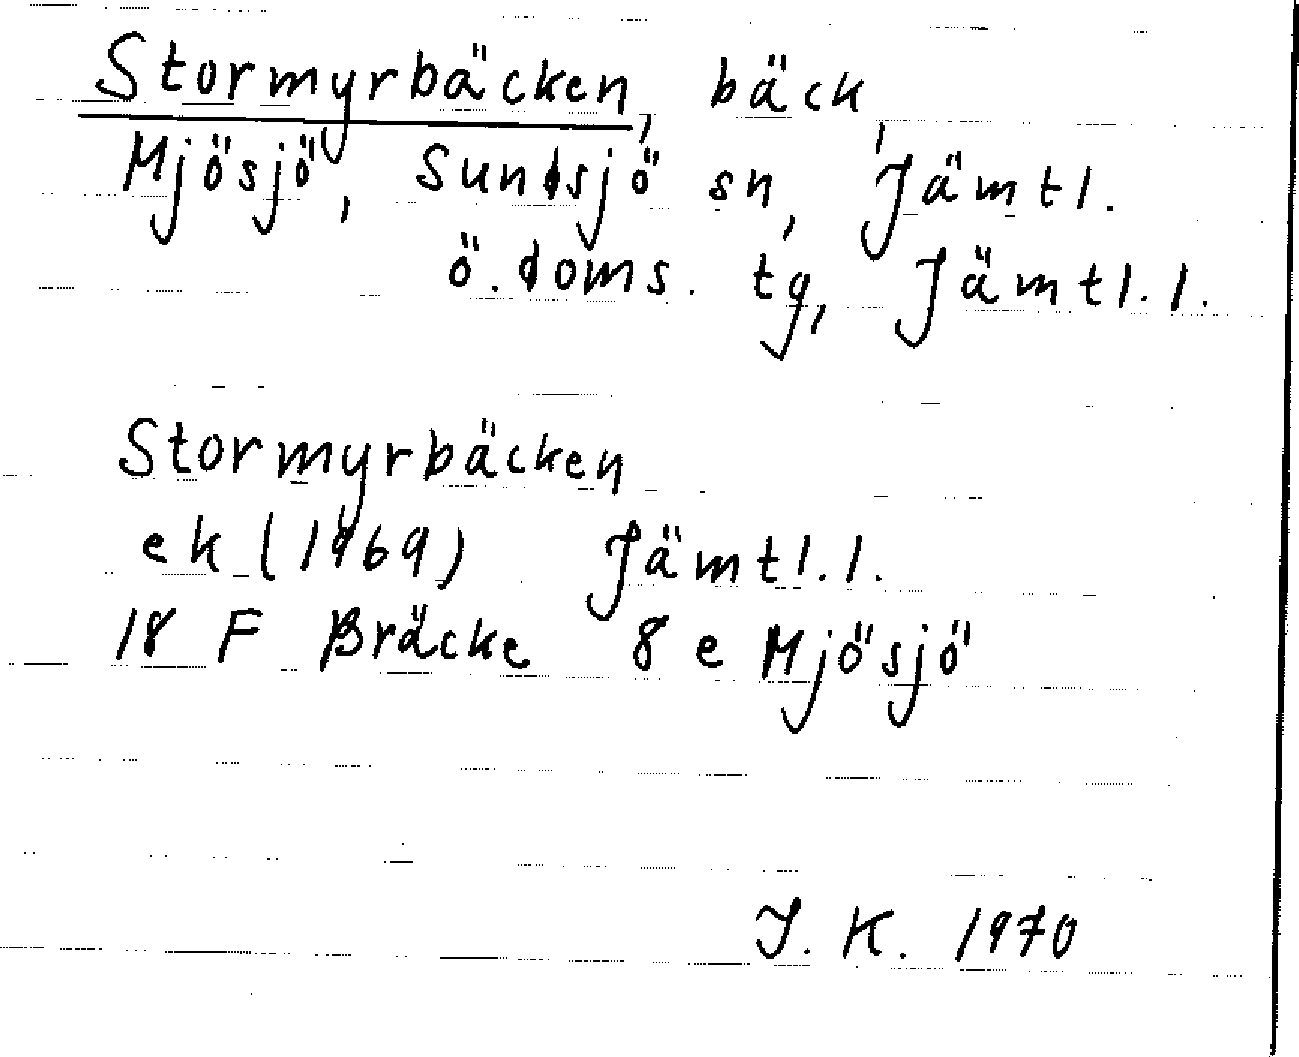 Stormyrbäcken, bäck,
Mjösjö, Sundsjö sn, Jämtl.
ö. doms. tg, Jämtl. l.
Stormyrbäcken
ek (1969) Jämtl. l.
18 F Bräcke 8 e Mjösjö
J. K. 1970